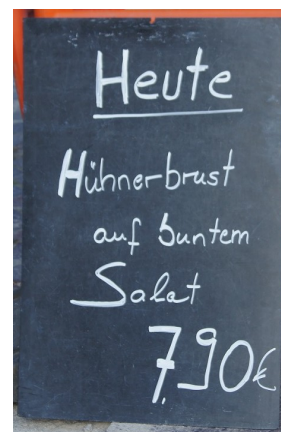 Heute
Hühnerbrust
auf buntem
Salat
7,90€